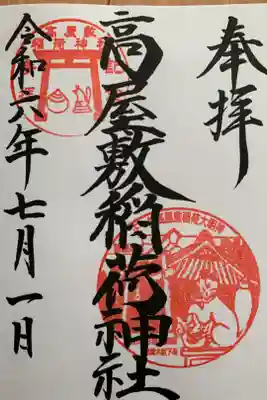 奉拝
高屋敷稲荷神社
令和六年七月一日